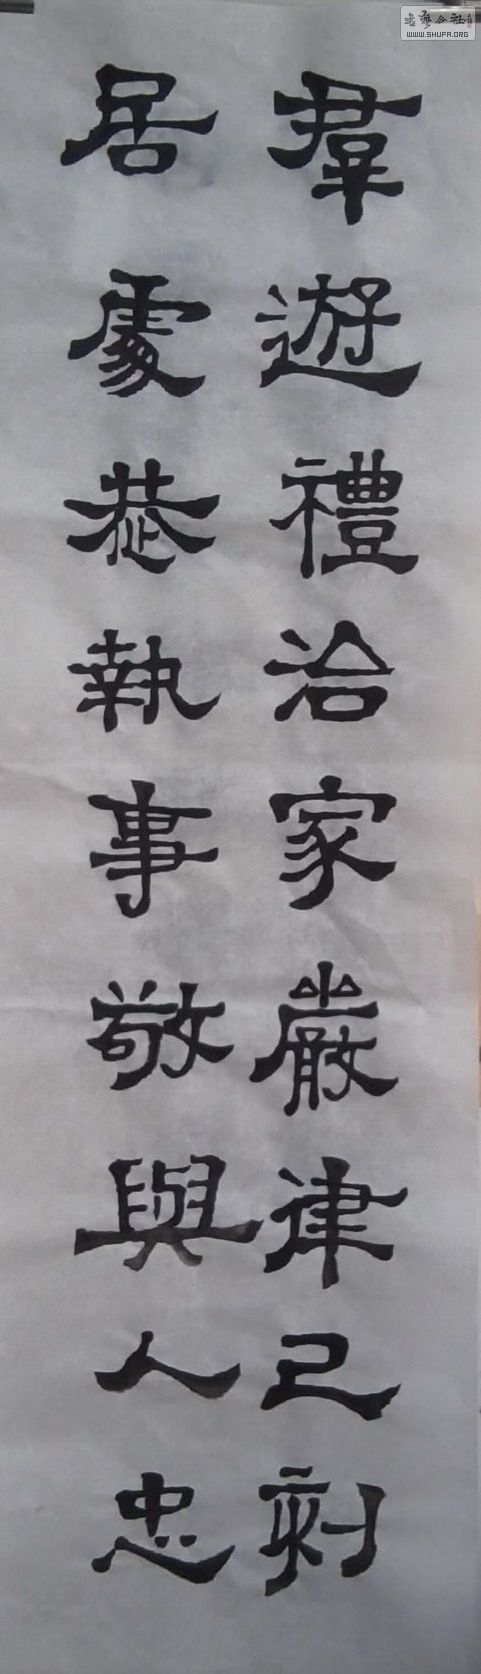 羣遊禮治家嚴律己刻
居處恭執事敬與人忠
書藝公社
WWW.SHUFA.ORG